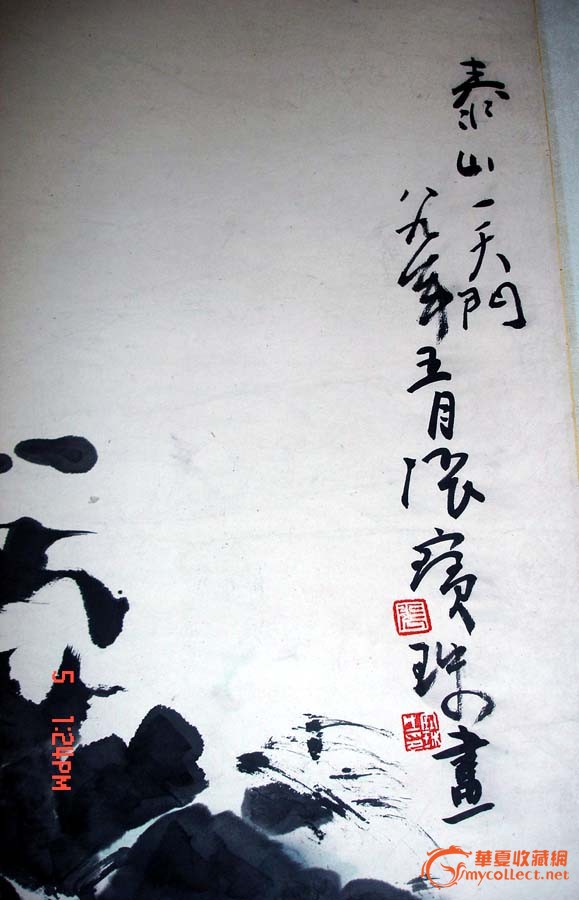 泰山一天門
八九年五月張寶珠畫
張
5 1:24PM
華夏收藏網
mycollect.net